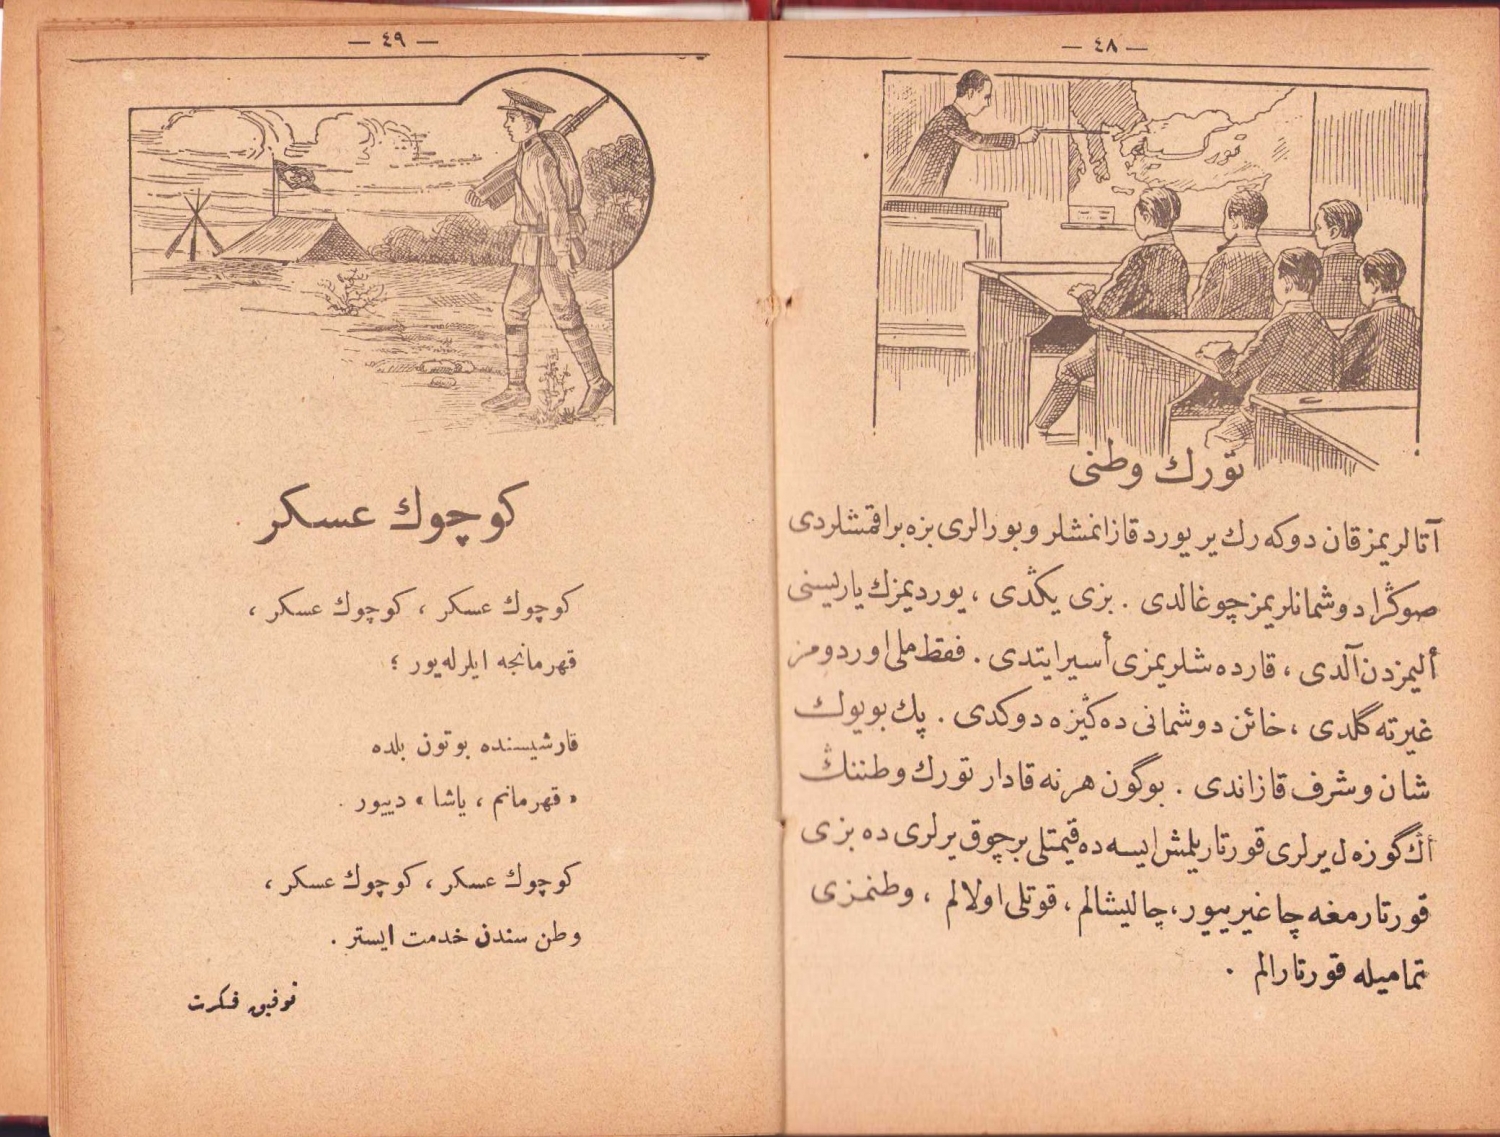 — ٤٨ —
تورك وطنی
آتالریمز قان دوكه رك یر یورد قازانمشلر و بورالری بزه براقمشلردی
صوڭرا دوشمانلریمز چوغالدی . بزی یڭدی ، یوردیمزك یاریسنی
ألیمزدن آلدی ، قارده شلریمزی أسیر ایتدی . فقط ملی اوردومز
غیرته گلدی ، خائن دوشمانی ده ڭیزه دوكدی . پك بویوك
شان و شرف قازاندی . بوگون هر نه قادار تورك وطننڭ
أڭ گوزه ل یرلری قورتاریلمش ایسه ده قیمتلی بر چوق یرلری ده بزی
قورتارمغه چاغیرییور، چالیشالم ، قوتلی اولالم ، وطنمزی
تمامیله قورتارالم .
— ٤٩ —
كوچوك عسكر
كوچوك عسكر ، كوچوك عسكر ،
قهرمانجه ایلرله یور ؛
قارشیسنده بوتون بلده
« قهرمانم ، یاشا » دییور .
كوچوك عسكر ، كوچوك عسكر ،
وطن سندن خدمت ایستر .
توفیق فكرت